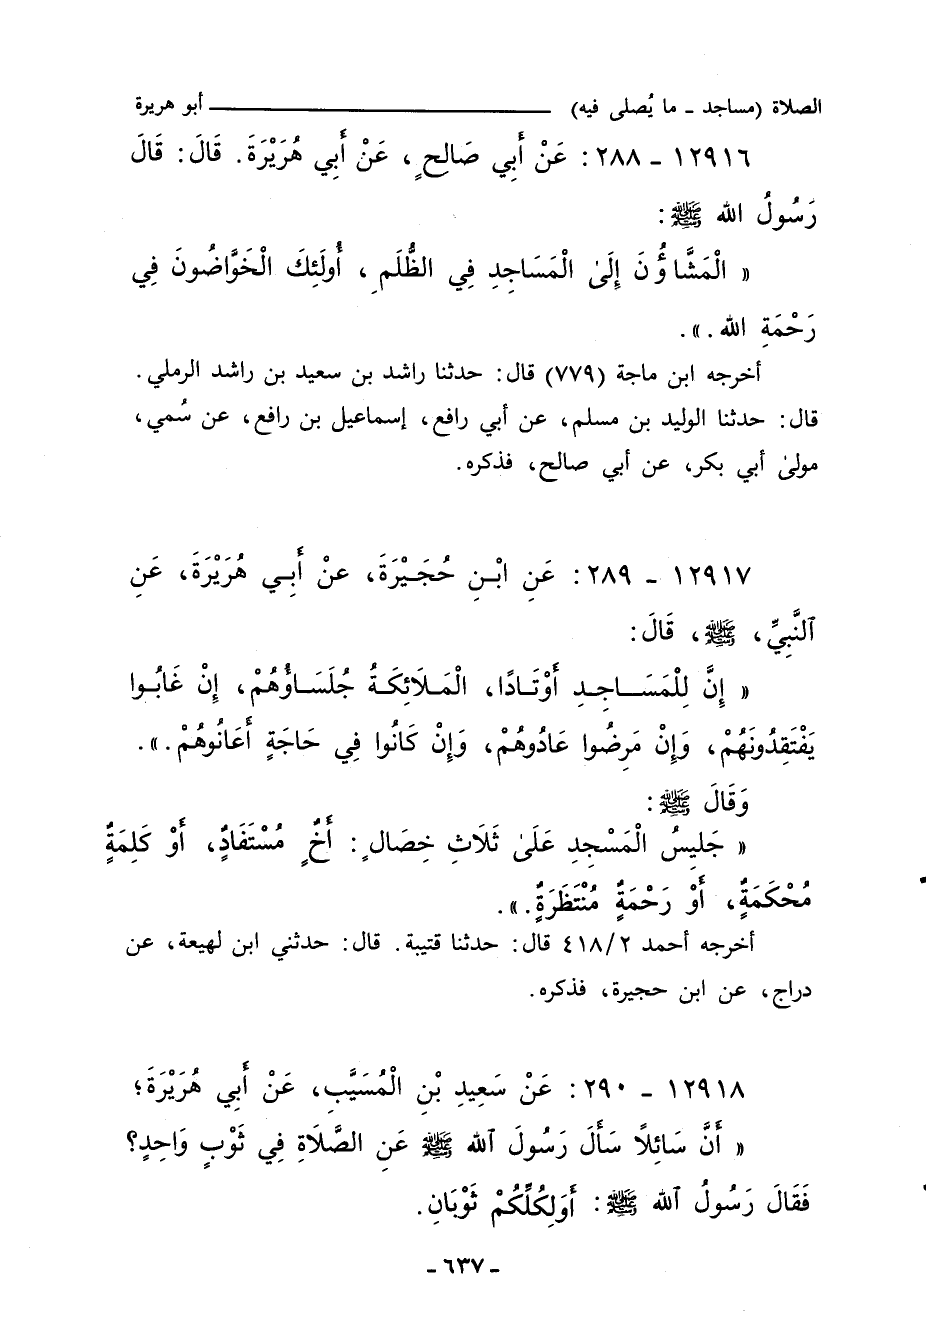 الصلاة (مساجد ـ ما يُصلى فيه) ــــــــــــــــــــ أبو هريرة
١٢٩١٦ ـ ٢٨٨ : عَنْ أَبِي صَالِحٍ ، عَنْ أَبِي هُرَيْرَةَ . قَالَ : قَالَ
رَسُولُ اللهِ ﷺ :
« الْمَشَّاؤُنَ إِلَىٰ الْمَسَاجِدِ فِي الظُّلَمِ ، أُولَئِكَ الْخَوَّاضُونَ فِي
رَحْمَةِ اللهِ . » .
أخرجه ابن ماجة (٧٧٩) قال : حدثنا راشد بن سعيد بن راشد الرملي .
قال : حدثنا الوليد بن مسلم ، عن أبي رافع ، إسماعيل بن رافع ، عن سُمي ،
مولىٰ أبي بكر ، عن أبي صالح ، فذكره .
١٢٩١٧ ـ ٢٨٩ : عَنِ ابْنِ حُجَيْرَةَ ، عنْ أَبِي هُرَيْرَةَ ، عَنِ
ٱلنَّبِيِّ ، ﷺ ، قَالَ :
« إِنَّ لِلْمَسَاجِدِ أَوْتَادًا ، الْمَلَائِكَةُ جُلَسَاؤُهُمْ ، إِنْ غَابُوا
يَفْتَقِدُونَهُمْ ، وَإِنْ مَرِضُوا عَادُوهُمْ ، وَإِنْ كَانُوا فِي حَاجَةٍ أَعَانُوهُمْ . » .
وَقَالَ ﷺ :
« جَلِيسُ الْمَسْجِدِ عَلَىٰ ثَلَاثِ خِصَالٍ : أَخٌ مُسْتَفَادٌ ، أَوْ كَلِمَةٌ
مُحْكَمَةٌ ، أَوْ رَحْمَةٌ مُنْتَظَرَةٌ . » .
أخرجه أحمد ٤١٨/٢ قال : حدثنا قتيبة . قال : حدثني ابن لهيعة ، عن
دراج ، عن ابن حجيرة ، فذكره .
١٢٩١٨ ـ ٢٩٠ : عَنْ سَعِيدِ بْنِ الْمُسَيَّبِ ، عَنْ أَبِي هُرَيْرَةَ ؛
« أَنَّ سَائِلًا سَأَلَ رَسُولَ ٱللهِ ﷺ عَنِ الصَّلَاةِ فِي ثَوْبٍ وَاحِدٍ ؟
فَقَالَ رَسُولُ ٱللهِ ﷺ : أَوَلِكُلِّكُمْ ثَوْبَانِ .
ـ ٦٣٧ ـ